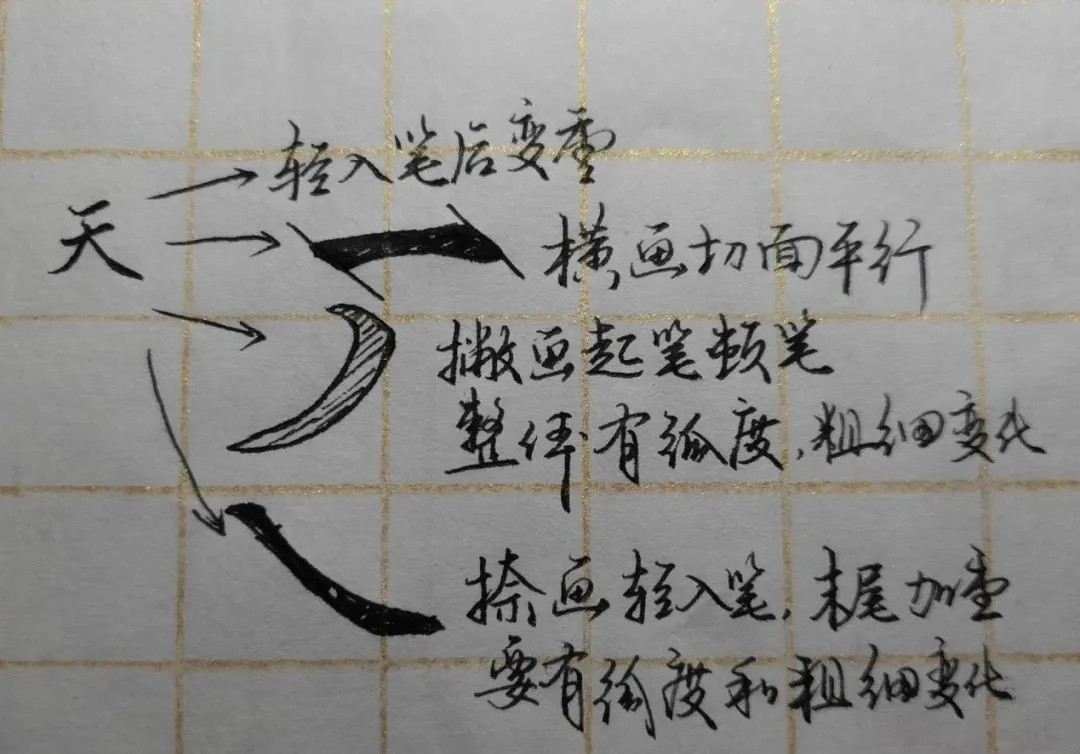 轻入笔后变重
天
横画切面平行
撇画起笔顿笔
整体有弧度,粗细变化
捺画轻入笔,末尾加重
要有弧度和粗细变化